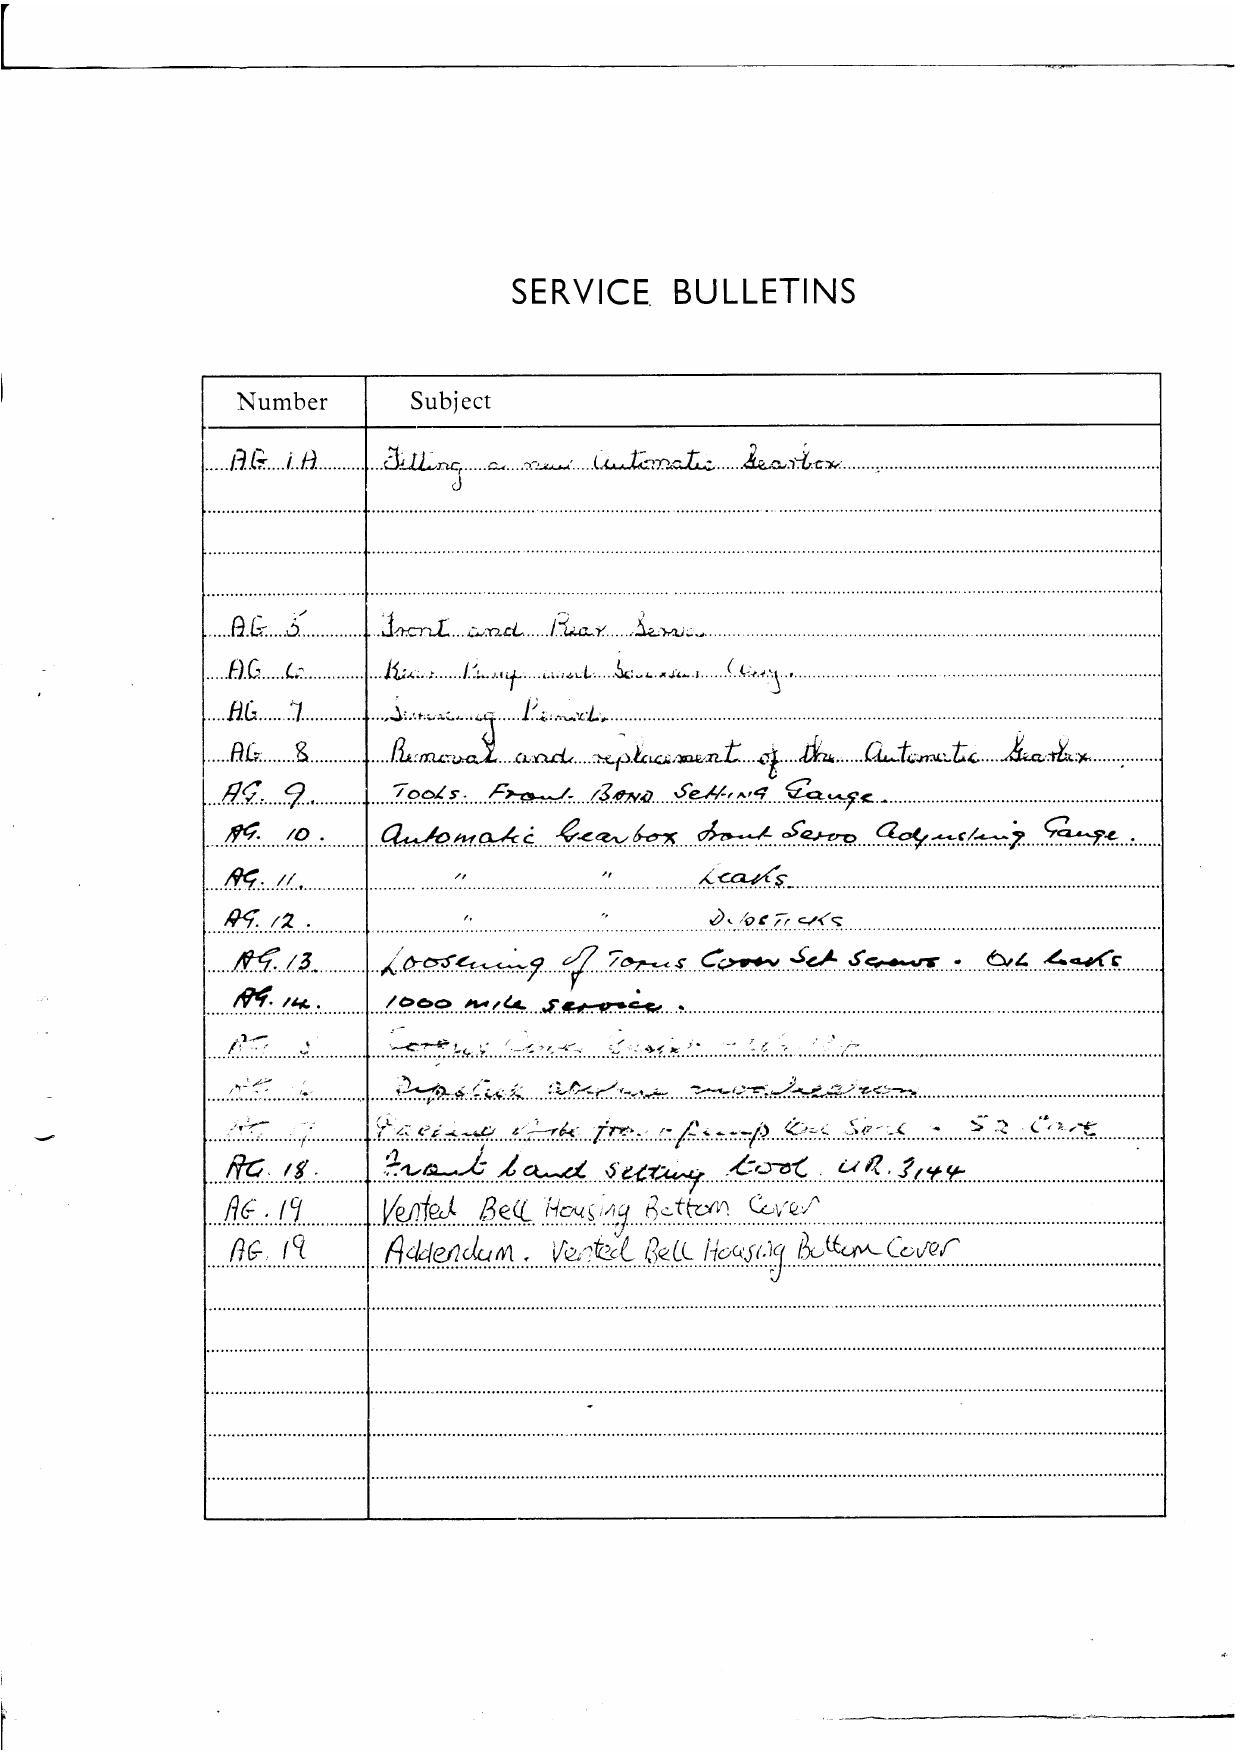 SERVICE BULLETINS
Number Subject
AG 1A Filling a new Automatic Gearbox
AG 5 Front and Rear Servo
AG 6 Rear Pump and
AG 7 Servicing Periods
AG 8 Removal and replacement of the Automatic Gearbox
AG. 9. Tools. Front BAND Setting Gauge.
AG. 10. Automatic Gearbox front Servo Adjusting Gauge.
AG. 11. " " Leaks
AG. 12. " " DipSTICKS
AG. 13. Loosening of Torus Cover Set Screws. Oil Leaks
AG. 14. 1000 mile service.
AG
Dipstick
AG 17 front pump Oil Seal - S2 Cars
AG. 18. Front band setting tool. UR. 3144
AG. 19 Vented Bell Housing Bottom Cover
AG. 19 Addendum. Vented Bell Housing Bottom Cover